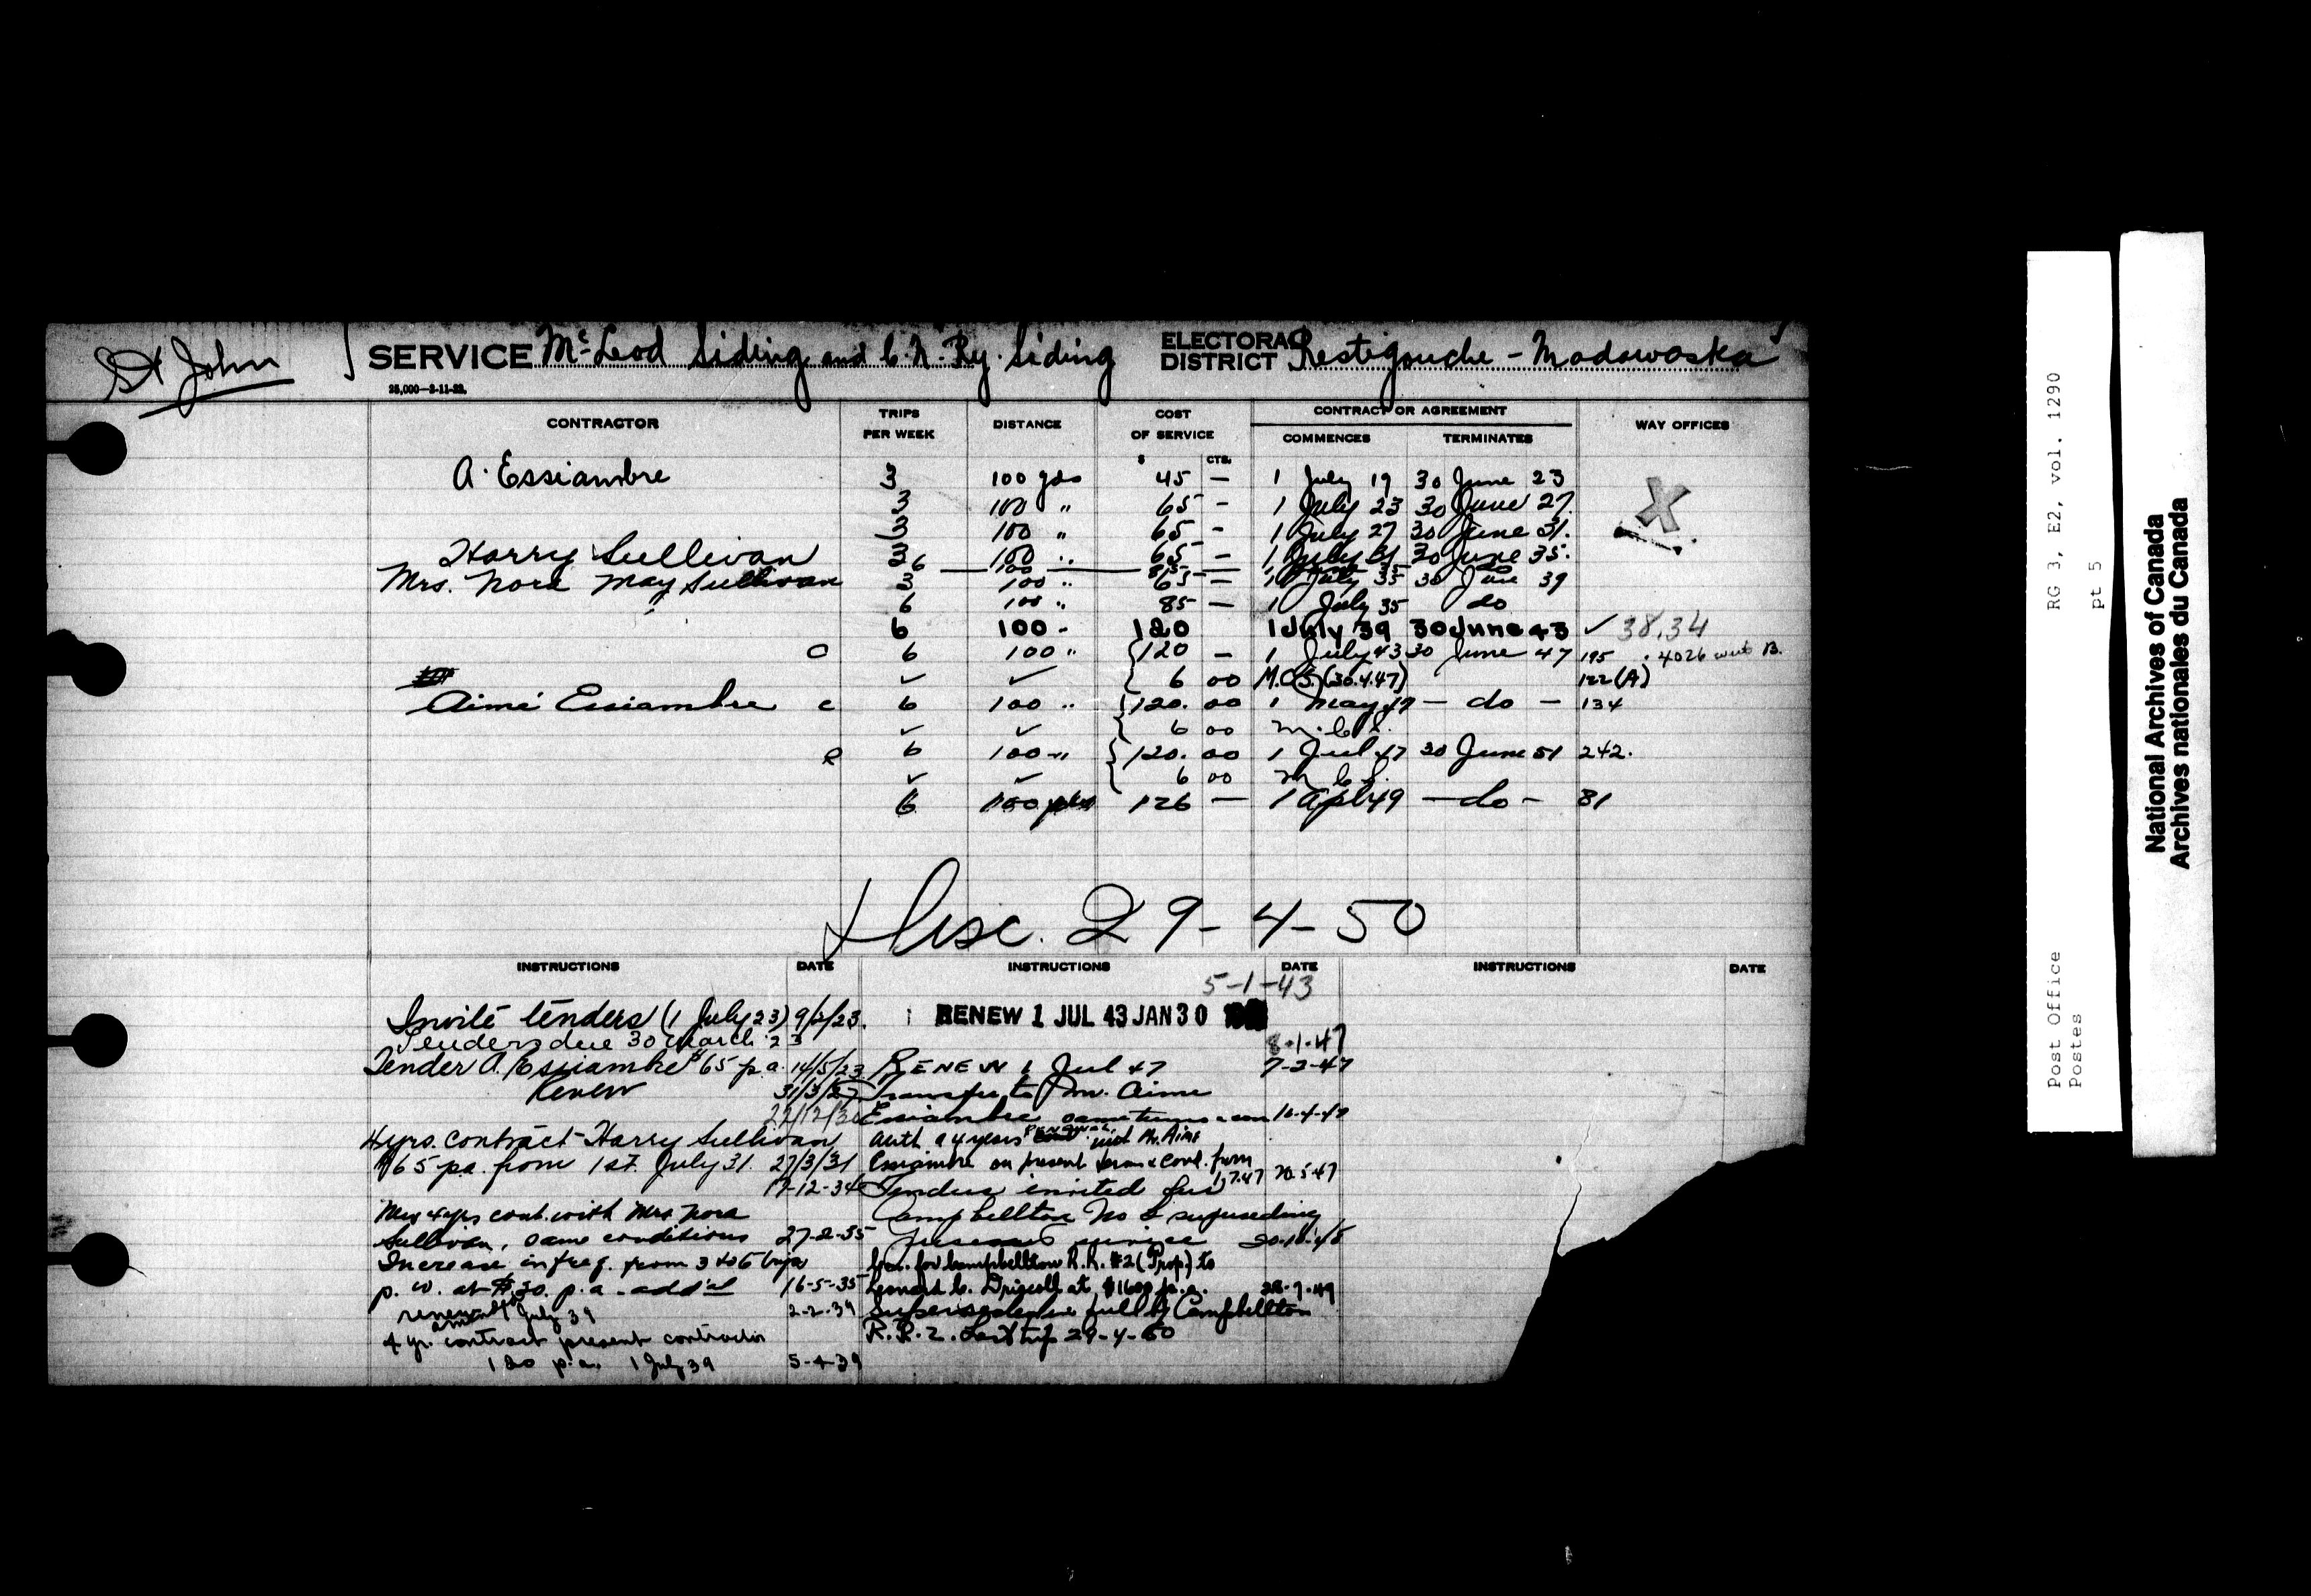 St John
SERVICE McLeod Siding and C. N. Ry. Siding
ELECTORAL DISTRICT Restigouche - Madawaska
25,000—2-11-22.
CONTRACTOR TRIPS PER WEEK DISTANCE COST OF SERVICE CONTRACT OR AGREEMENT WAY OFFICES
COMMENCES TERMINATES
$ CTS.
A. Essiambre 3 100 yds 45 — 1 July 19 30 June 23
3 100 " 65 - 1 July 23 30 June 27.
3 100 " 65 - 1 July 27 30 June 31.
X
Harry Sullivan 3 100 " 65 — 1 July 31 30 June 35.
6 — 100 — 85 —
Mrs. Nora May Sullivan 3 100 " 65 — 1 July 35 30 June 39
6 100 " 85 — 1 July 35 do
6 100 - 120 1 July 39 30 June 43 ✓ 38.34
C 6 100 " 120 — 1 July 43 30 June 47 195 . 4026 B.
✓ ✓ 6 00 M.C.S. (30.4.47) 122 (A)
Aimé Essiambre c 6 100 " 120. 00 1 May 47 — do — 134
✓ ✓ 6 00 M.C.S.
R 6 100 " 120. 00 1 Jul 47 30 June 51 242.
✓ ✓ 6 00 M.C.S.
6 100 yds 126 — 1 Apl 49 — do — 81
Disc. 29-4-50
INSTRUCTIONS DATE INSTRUCTIONS DATE INSTRUCTIONS DATE
Invite tenders (1 July 23) 9/2/23.
Tenders due 30 March 23
Tender A. Essiambre $65 p.a. 14/5/23
Renew 31/3/27
22/12/30
4 yrs. contract Harry Sullivan
$65 p.a. from 1st July 31. 27/3/31
17-12-34
New 4 yrs cont. with Mrs. Nora
Sullivan, same conditions 27-2-35
Increase in freq. from 3 to 6 trips
p. w. at $20. p.a. add'al 16-5-35
renewal July 39 2-2-39
4 yr. contract present contractor
120 p.a. 1 July 39 5-4-39
5-1-43
RENEW 1 JUL 43 JAN 30
8-1-47
RENEW 1 Jul 47 7-2-47
Transfer to Mr. Aimé
Essiambre same terms & con 16-4-47
Auth a 4 years renewal with Mr. Aimé
Essiambre on present terms & cond. from
1.7.47 20.5.47
Tenders invited for
Campbellton No 2 superseding
present service 20-10-48
Con. for Campbellton R.R. #2 (Prop.) to
Leonard C. Driscoll at $1600 p.a. 28-7-49
Superseded in full by Campbellton
R.R. 2. Last trip 29-4-50
RG 3, E2, vol. 1290
pt 5
Post Office
Postes
National Archives of Canada
Archives nationales du Canada